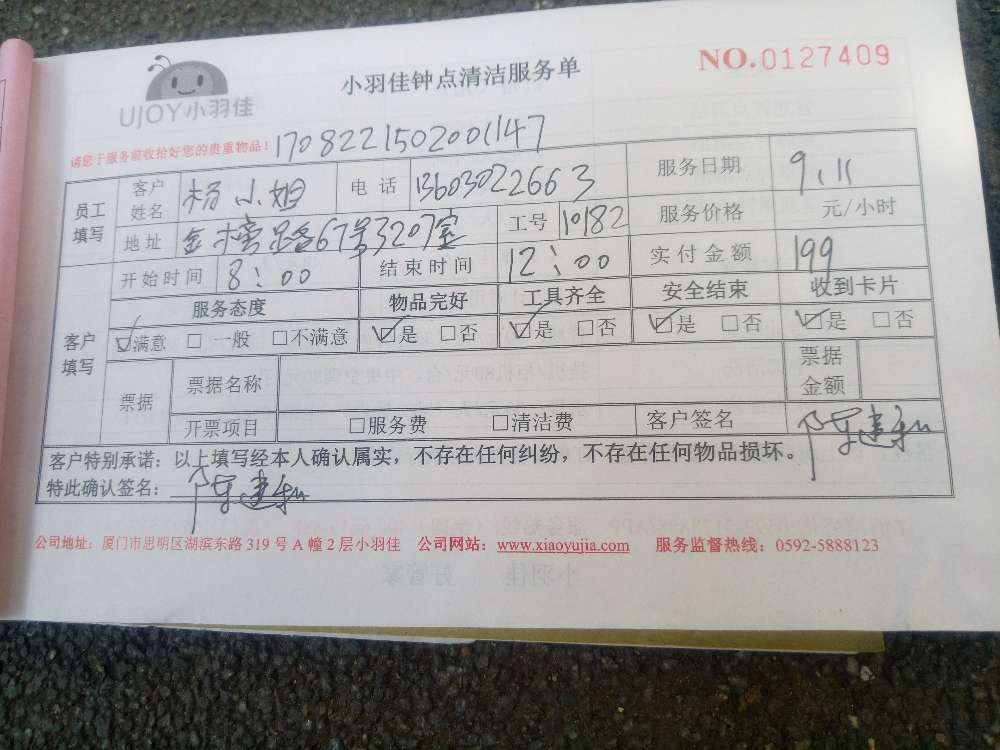 UJOY小羽佳
小羽佳钟点清洁服务单
NO.0127409
请您于服务前收拾好您的贵重物品！ 1708221502001147
员工填写 客户姓名 杨小姐 电话 13603022663 服务日期 9.11
地址 金榜路67号3207室 工号 10182 服务价格 元/小时
客户填写 开始时间 8:00 结束时间 12:00 实付金额 199
服务态度 物品完好 工具齐全 安全结束 收到卡片
☑满意 □一般 □不满意 ☑是 □否 ☑是 □否 ☑是 □否 ☑是 □否
票据 票据名称 票据金额
开票项目 □服务费 □清洁费 客户签名
客户特别承诺：以上填写经本人确认属实，不存在任何纠纷，不存在任何物品损坏。
特此确认签名：
公司地址：厦门市思明区湖滨东路 319 号 A 幢 2 层小羽佳 公司网站：www.xiaoyujia.com 服务监督热线：0592-5888123